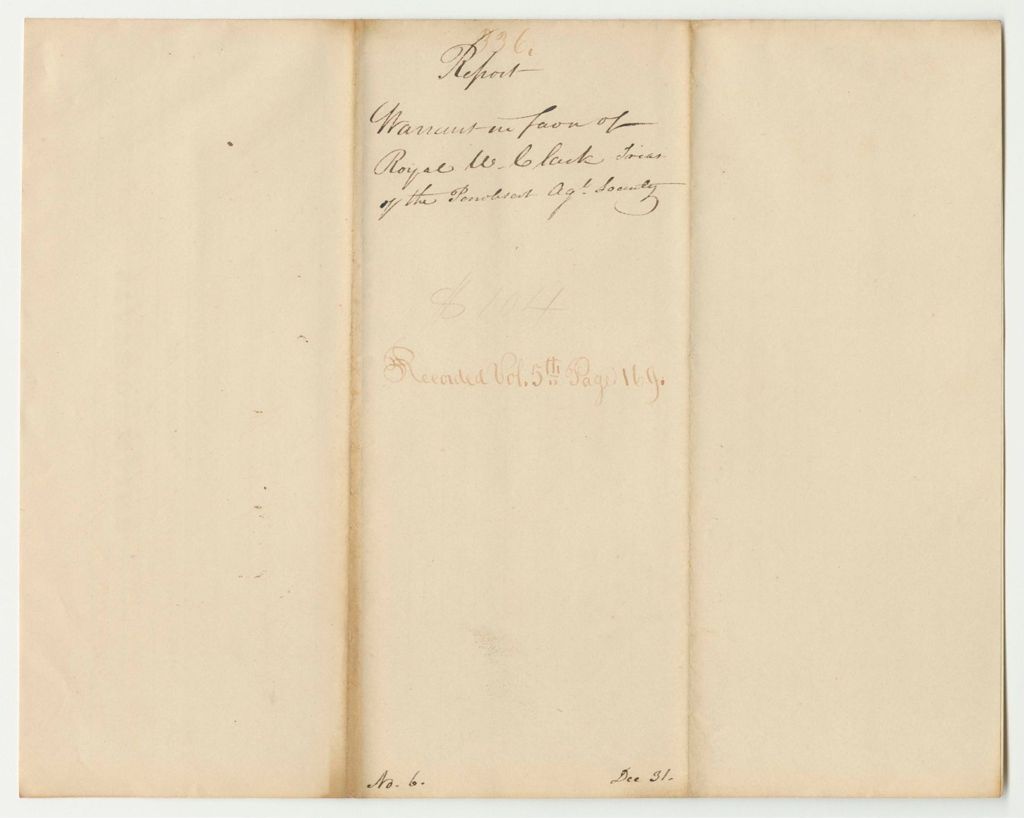 336.
Report
Warrant in favor of
Royal W. Clark Treas
of the Penobscot Agl. Society
$104
Recorded Vol. 5th Page 169.
No. 6. Dec 31.